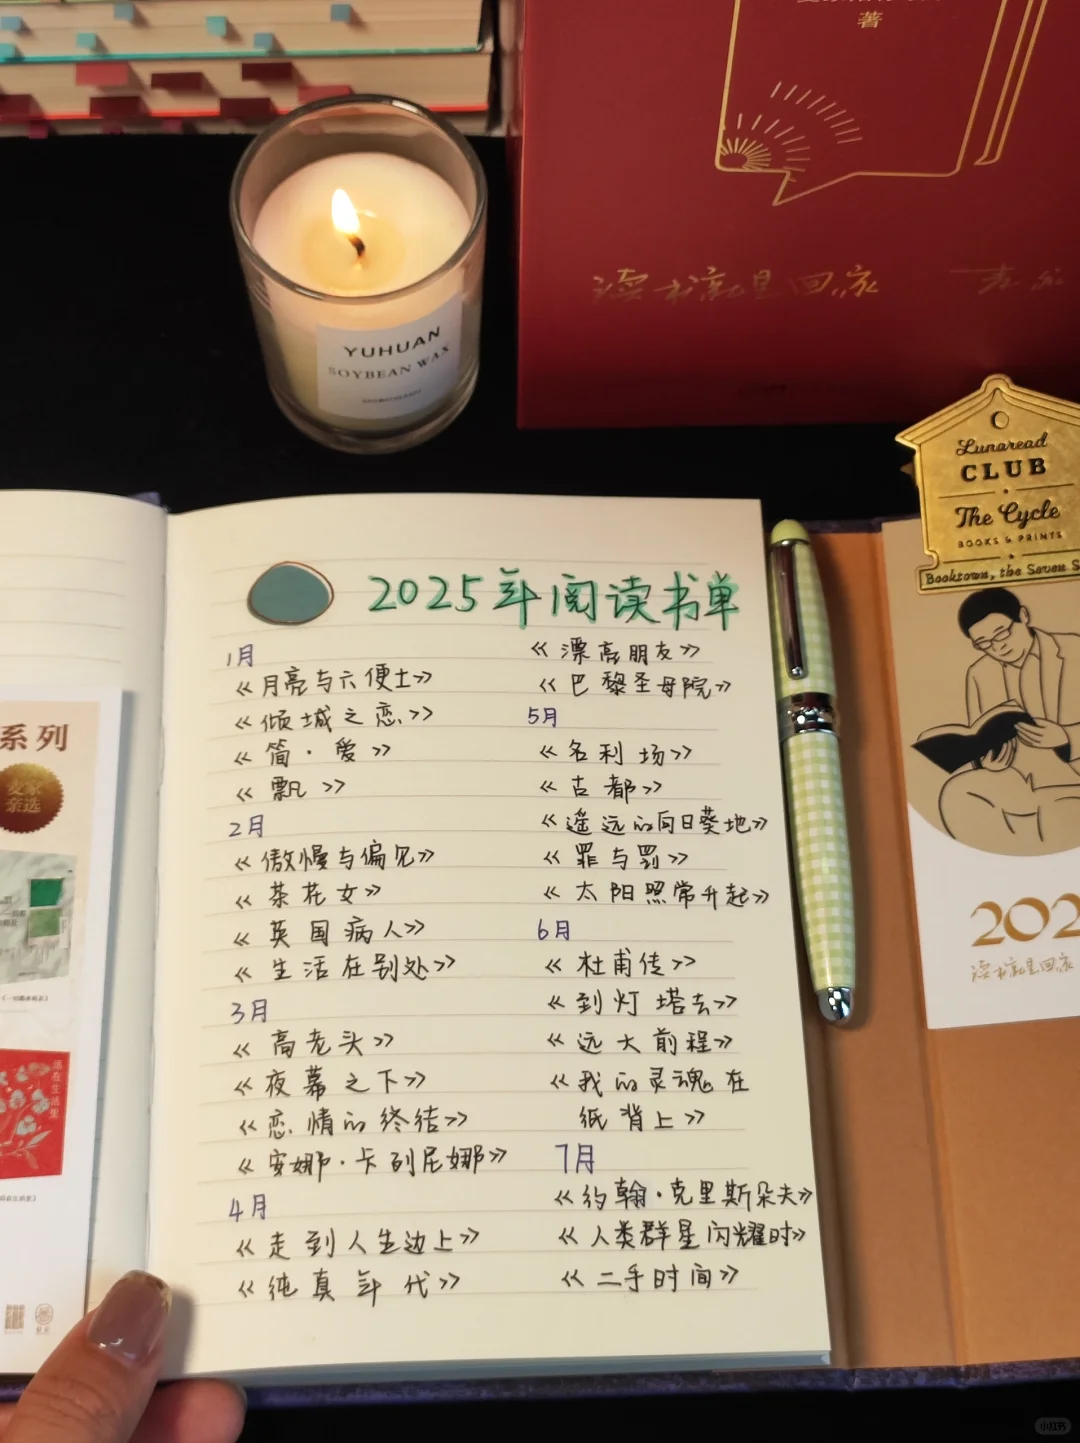 著
读书就是回家
YUHUAN
SOYBEAN WAX
Lunaread
CLUB
The Cycle
BOOKS & PRINTS
Booktown, the Seven S
2025年阅读书单
1月
《月亮与六便士》
《倾城之恋》
《简·爱》
《飘》
2月
《傲慢与偏见》
《茶花女》
《英国病人》
《生活在别处》
3月
《高老头》
《夜幕之下》
《恋情的终结》
《安娜·卡列尼娜》
4月
《走到人生边上》
《纯真年代》
《漂亮朋友》
《巴黎圣母院》
5月
《名利场》
《古都》
《遥远的向日葵地》
《罪与罚》
《太阳照常升起》
6月
《杜甫传》
《到灯塔去》
《远大前程》
《我的灵魂在
纸背上》
7月
《约翰·克里斯朵夫》
《人类群星闪耀时》
《二手时间》
系列
麦家
亲选
活在生活里
202
读书就是回家
小红书